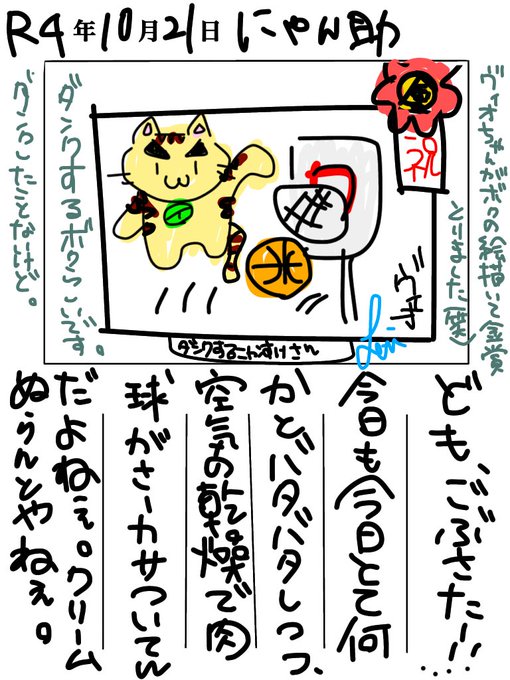 R4年10月21日 にゃん助
ヴィオちゃんがボクの絵描いて金賞
とりました(笑)
祝
ダンクするボクらしいです。
ダンクしたことないけど。
ダンクするにゃんすけさん
ども、ごぶさたー!!...
今日も今日とて何
かとバタバタしつつ、
空気の乾燥で肉
球がさーカサついてん
だよねぇ。クリーム
ぬらんとやねぇ。